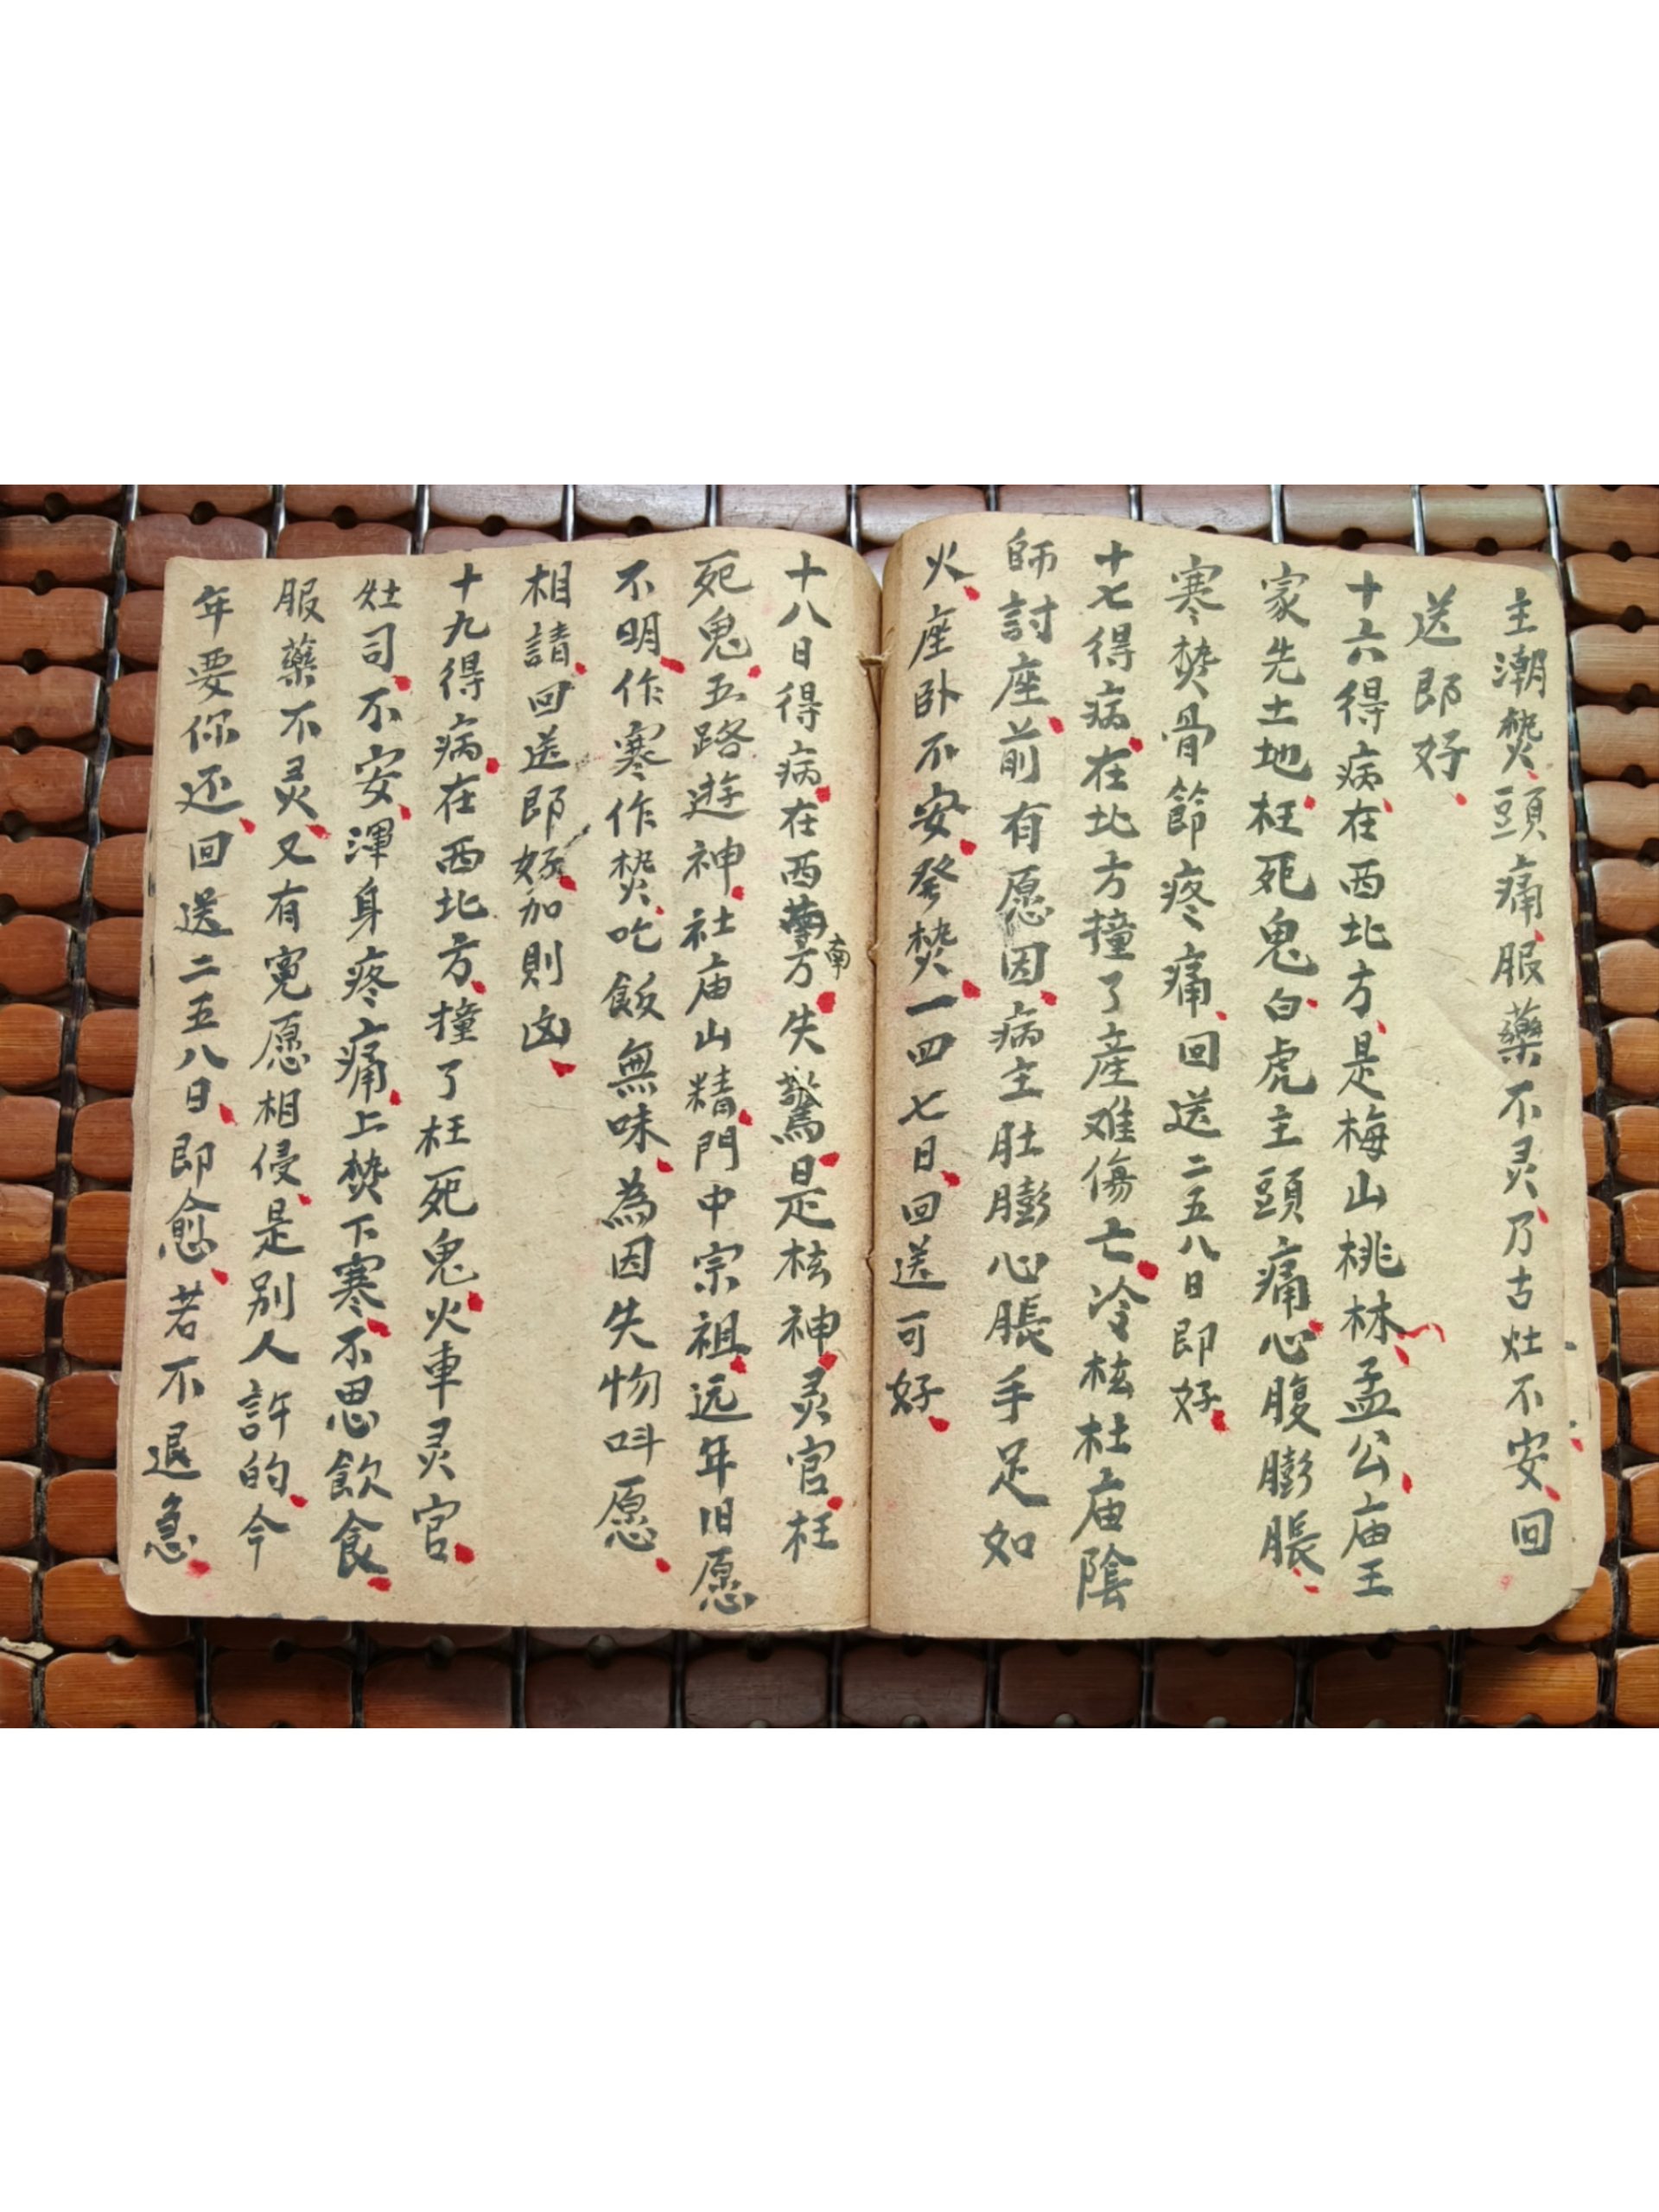 主潮焚頭痛服藥不灵乃古灶不安回
送即好
十六得病在西北方是梅山桃林孟公庙王
家先土地枉死鬼白虎主頭痛心腹膨脹
寒焚骨節疼痛回送二五八日即好
十七得病在北方撞了產难傷亡冷枟社庙陰
師討座前有愿因病主肚膨心脹手足如
火座卧不安發焚一四七日回送可好
十八日得病在西南方失驚是枟神灵官枉
死鬼五路遊神社庙山精門中宗祖远年旧愿
不明作寒作焚吃飯無味為因失物呌愿
相請回送即好加則凶
十九得病在西北方撞了枉死鬼火車灵官
灶司不安渾身疼痛上焚下寒不思飲食
服藥不灵又有寃愿相侵是别人許的今
年要你还回送二五八日即愈若不退急